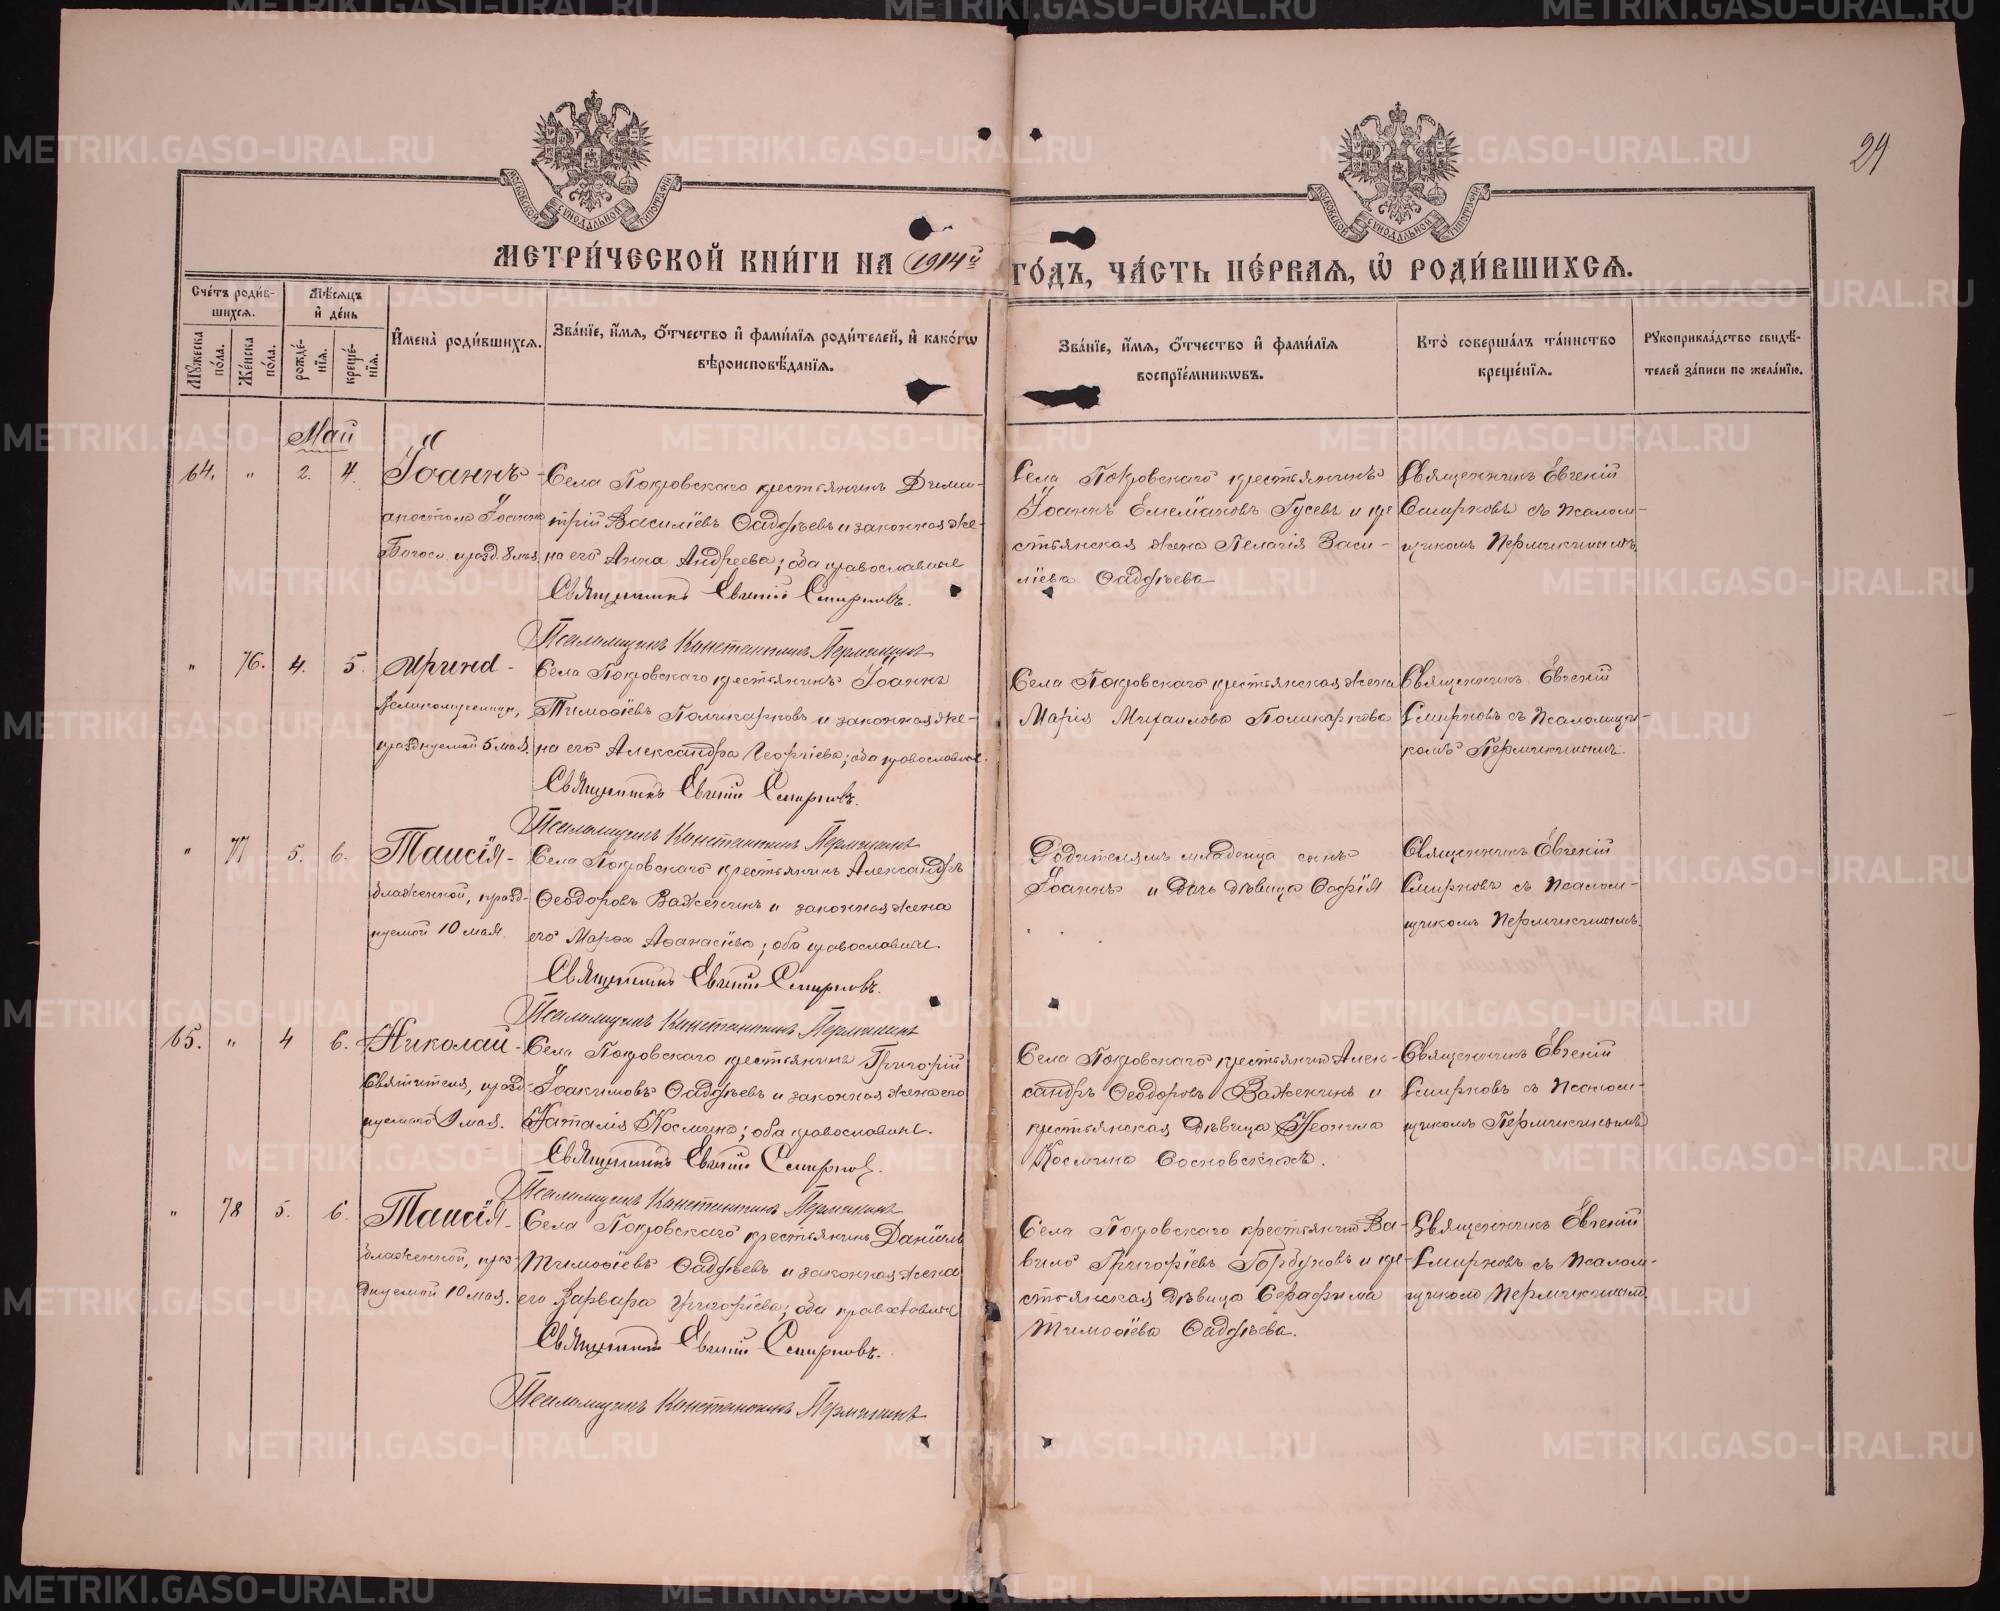 29
МЕТРИ́ЧЕСКОЙ КНИ́ГИ НА 1914й ГО́ДЪ, ЧА́СТЬ ПЕ́РВАЯ, Ѡ РОДИ́ВШИХСЯ.
Сче́тъ роди́в-
шихся.
Му́жеска по́ла.
Же́нска по́ла.
Мѣ́сяцъ
и де́нь
рожде́-
нія.
креще́-
нія.
Имена̀ роди́вшихся.
Зва́ніе, и́мя, о́тчество и фами́лія роди́телей, и како́гѡ
вѣроисповѣ́данія.
Зва́ніе, и́мя, о́тчество и фами́лія
воспрїе́мникѡвъ.
Кто̀ соверша́лъ та́инство
креще́нія.
Рукоприкла́дство свидѣ́-
телей за́писи по жела́нію.
Май
64. " 2. 4.
Іоаннъ -
апостола Іоанна
Богосл. празд. 8 мая.
Села Покровскаго крестьянинъ Дими-
трій Василіевъ Ѳадѣевъ и законная же-
на его Анна Андреева; оба православные
Священникъ Евгеній Смирновъ.
Псаломщикъ Константинъ Пермикинъ
Села Покровскаго крестьянинъ
Іоаннъ Емеліановъ Гусевъ и кре-
стьянская жена Пелагія Васи-
ліева Ѳадѣева
Священникъ Евгеній
Смирновъ съ псалом-
щикомъ Пермикинымъ.
" 76. 4. 5.
Ирина -
великомученицы,
празднуемой 5 мая.
Села Покровскаго крестьянинъ Іоаннъ
Тимоѳіевъ Поликарповъ и законная же-
на его Александра Георгіева; оба православные.
Священникъ Евгеній Смирновъ.
Псаломщикъ Константинъ Пермикинъ
Села Покровскаго крестьянская жена
Марія Михаилова Поликарпова
Священникъ Евгеній
Смирновъ съ псаломщи-
комъ Пермикинымъ.
" 77 5. 6.
Таисія -
блаженной, празд-
нуемой 10 мая.
Села Покровскаго крестьянинъ Александръ
Ѳеодоровъ Важенинъ и законная жена
его Марѳа Аѳанасіева; оба православные.
Священникъ Евгеній Смирновъ.
Псаломщикъ Константинъ Пермикинъ
Родителямъ младенца сынъ
Іоаннъ и дочь дѣвица Софія
Священникъ Евгеній
Смирновъ съ псалом-
щикомъ Пермикинымъ.
65. " 4 6.
Николай -
святителя, празд-
нуемаго 9 мая.
Села Покровскаго крестьянинъ Григорій
Іоакимовъ Ѳадѣевъ и законная жена его
Наталія Космина; оба православные.
Священникъ Евгеній Смирновъ.
Псаломщикъ Константинъ Пермикинъ
Села Покровскаго крестьянинъ Алек-
сандръ Ѳеодоровъ Важенинъ и
крестьянская дѣвица Неонила
Космина Сосновскихъ.
Священникъ Евгеній
Смирновъ съ псалом-
щикомъ Пермикинымъ
" 78 5. 6.
Таисія -
блаженной, праз-
днуемой 10 мая.
Села Покровскаго крестьянинъ Даніилъ
Тимоѳіевъ Ѳадѣевъ и законная жена
его Варвара Григоріева; оба православные
Священникъ Евгеній Смирновъ.
Псаломщикъ Константинъ Пермикинъ
Села Покровскаго крестьянинъ Ва-
вило Григоріевъ Горбуновъ и кре-
стьянская дѣвица Серафима
Тимоѳіева Ѳадѣева.
Священникъ Евгеній
Смирновъ съ псалом-
щикомъ Пермикинымъ.
METRIKI.GASO-URAL.RU